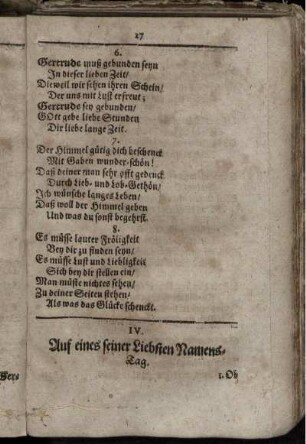 17
6.
Gertrude muß gebunden seyn
In dieser lieben Zeit/
Dieweil wir sehen ihren Schein/
Der uns mit Lust erfreut;
Gertrude sey gebunden/
GOtt gebe liebe Stunden
Dir liebe lange Zeit.
7.
Der Himmel gütig dich beschenck
Mit Gaben wunder-schön!
Daß deiner man sehr offt gedenck
Durch Lieb- und Lob-Gethön/
Ich wünsche langes Leben/
Daß woll der Himmel geben
Und was du sonst begehrst.
8.
Es müsse lauter Fröligkeit
Bey dir zu finden seyn/
Es müsse Lust und Liebligkeit
Sich bey dir stellen ein/
Man müsse nichtes sehen/
Zu deiner Seiten stehen/
Als was das Glücke schenckt.
IV.
Auf eines seiner Liebsten Namens-
Tag.
1. Ob